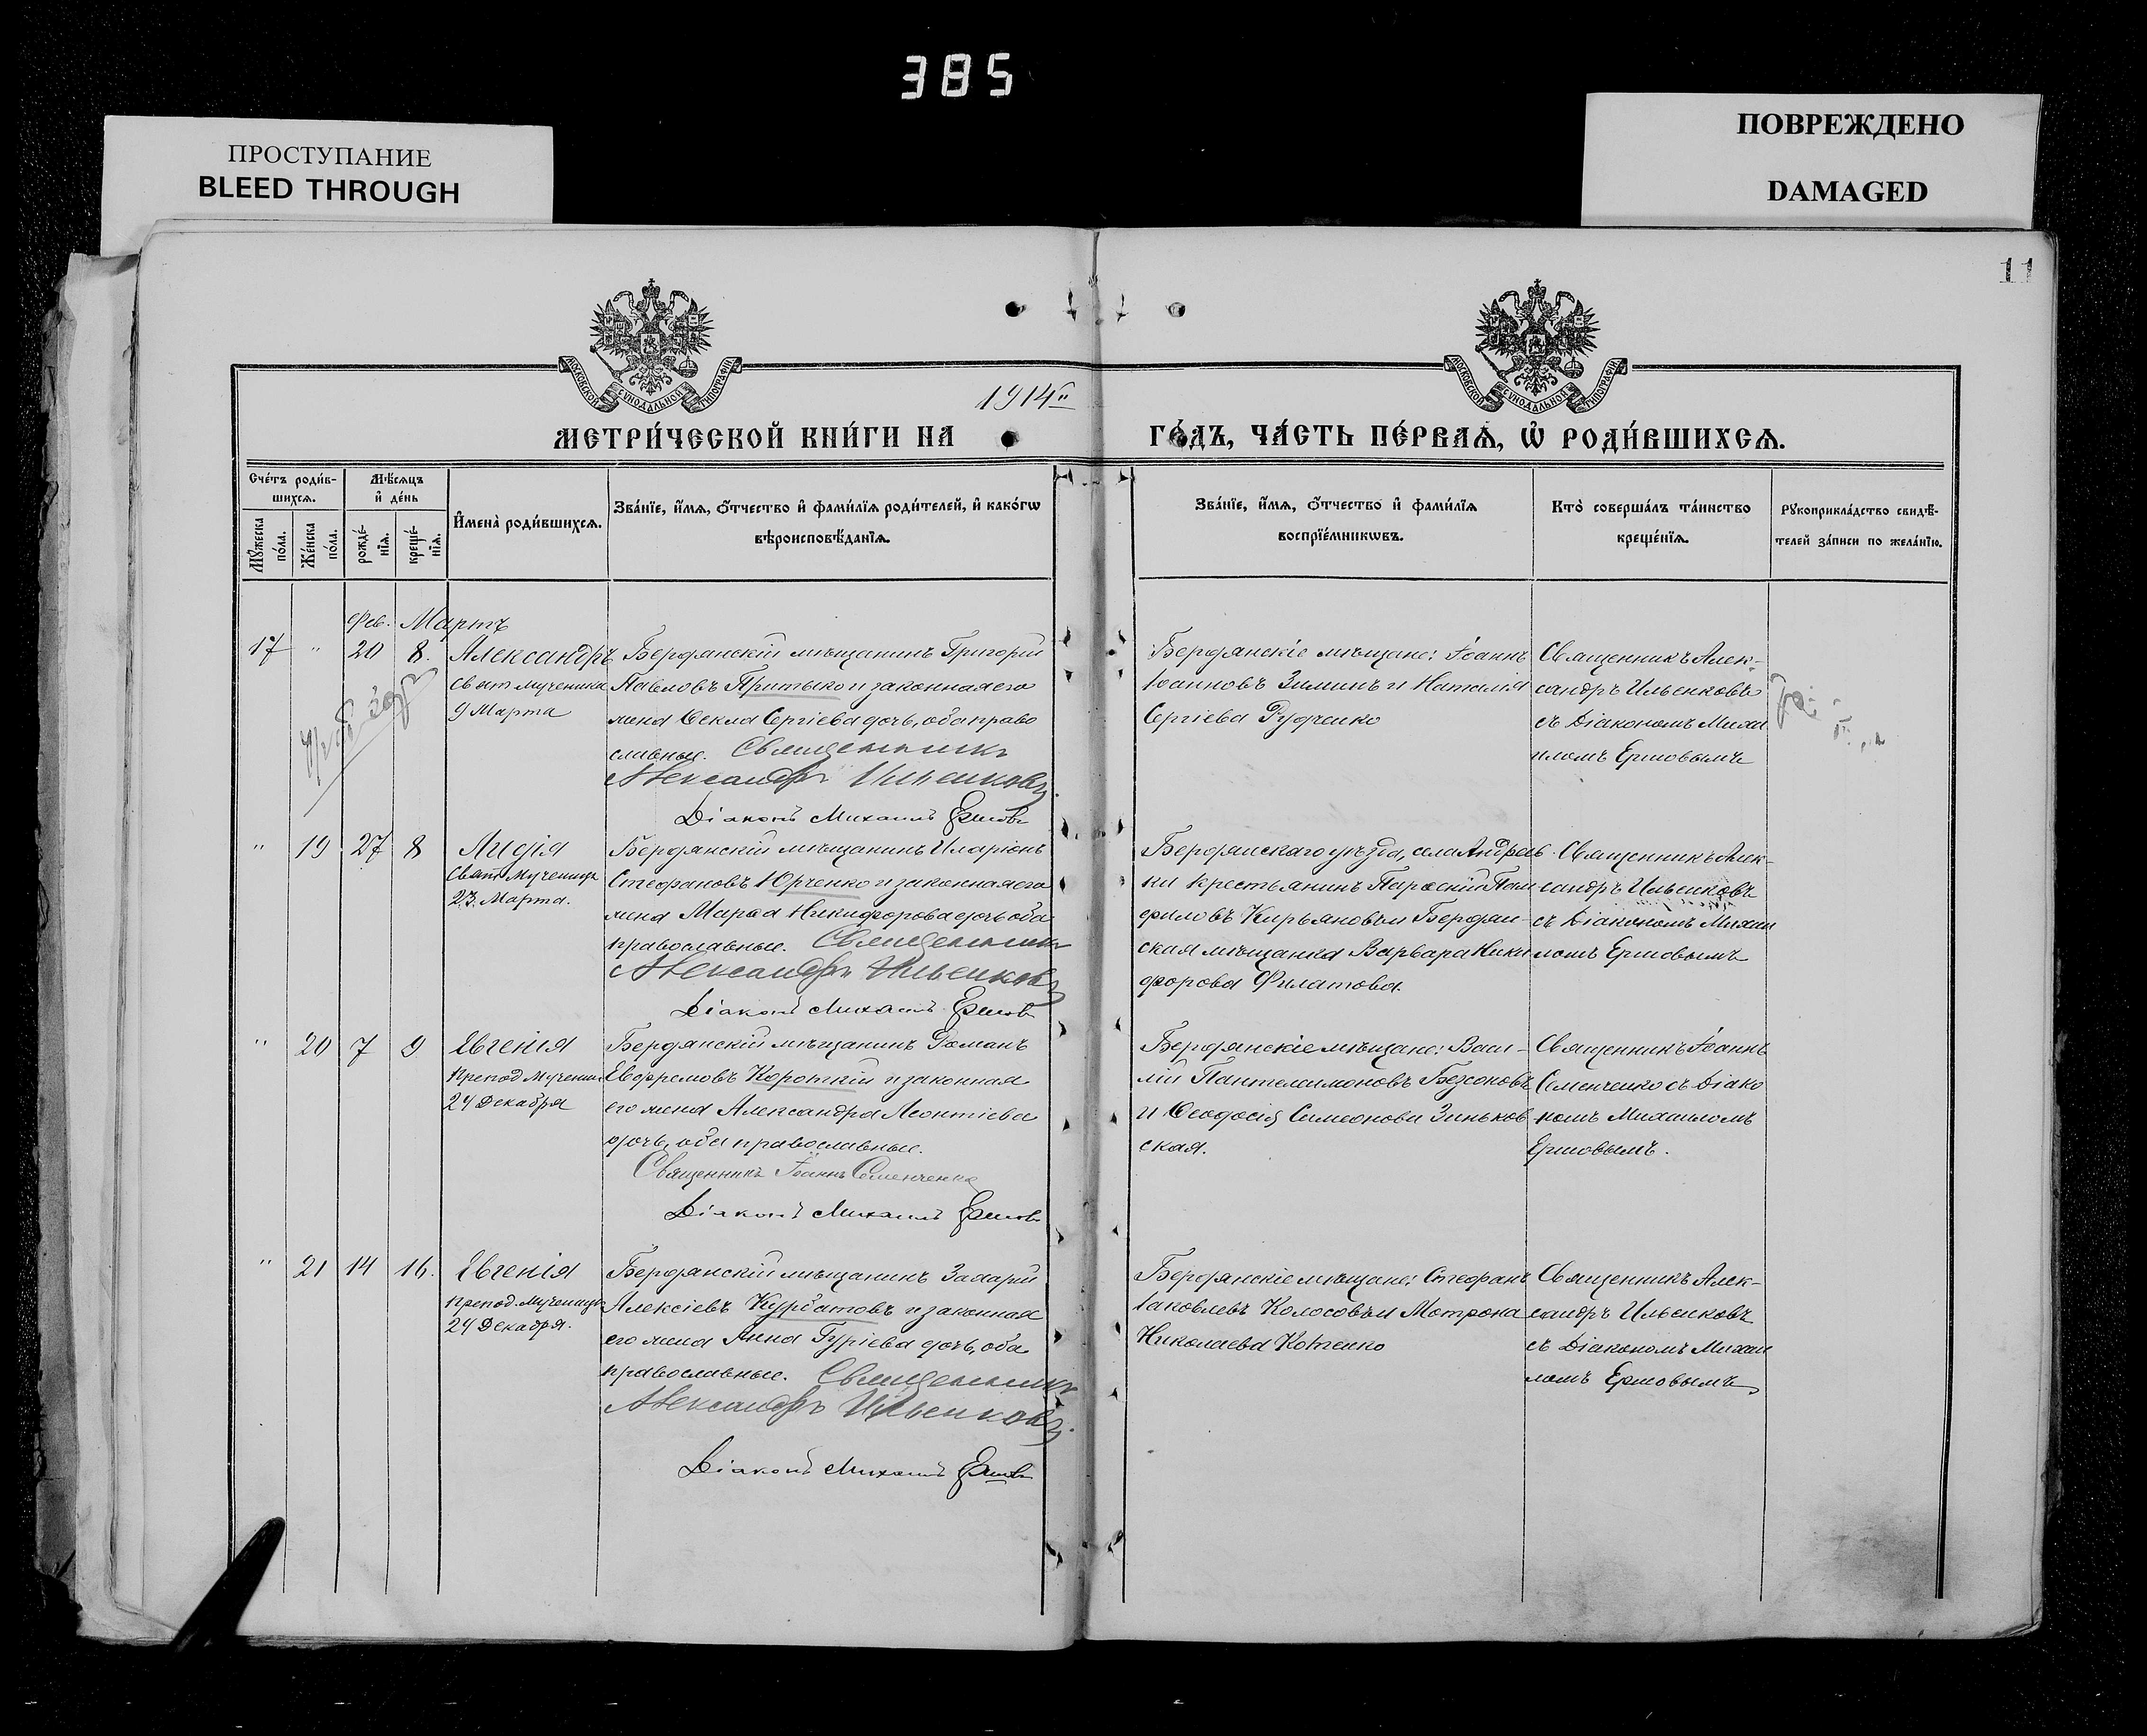 385
ПРОСТУПАНИЕ
BLEED THROUGH
ПОВРЕЖДЕНО
DAMAGED
11
МОСКОВСКОЙ СѴНОДАЛЬНОЙ ТИПОГРАФІИ
МОСКОВСКОЙ СѴНОДАЛЬНОЙ ТИПОГРАФІИ
1914
МЕТРИ́ЧЕСКОЙ КНИ́ГИ НА
ГО́ДЪ, ЧА́СТЬ ПЕ́РВАѦ, Ѡ҆ РОДИ́ВШИХСѦ.
Сче́тъ роди́в-
шихсѧ.
Мѣ́сѧцъ
и҆ де́нь
Мꙋ́жеска по́ла.
Же́нска по́ла.
рожде́-
нїѧ.
креще́-
нїѧ.
И҆мена̀ роди́вшихсѧ.
Зва́нїе, и҆́мѧ, ѻ҆́тчество и҆ фами́лїѧ роди́телей, и҆ како́гѡ
вѣроисповѣ́данїѧ.
Зва́нїе, и҆́мѧ, ѻ҆́тчество и҆ фами́лїѧ
воспрїе́мникѡвъ.
Кто̀ соверша́лъ та́инство
креще́нїѧ.
Рꙋкоприкла́дство свидѣ́-
телей за́писи по жела́нїю.
Фев. Мартъ
17 " 20 8. Александръ
Свят Мученика
9 Марта
Бердянскій мѣщанинъ Григорій
Павловъ Притыко и законная его
жена Ѳекла Сергіева дочь, оба право
славные. Священникъ
Александръ Ильенковъ.
Діаконъ Михаилъ Ершовъ
Бердянскіе мѣщане: Іоаннъ
Іоанновъ Зиминъ и Наталія
Сергіева Рудченко
Священникъ Алек-
сандръ Ильенковъ
съ Діакономъ Михаи
иломъ Ершовымъ
" 19 27 8 Лидія
Свят Мученицы
23. Марта.
Бердянскій мѣщанинъ Иларіонъ
Стефановъ Юрченко и законная его
жена Марѳа Никифорова дочь оба
православные. Священникъ
Александръ Ильенковъ
Діаконъ Михаилъ Ершовъ
Бердянскаго уѣзда, села Андреев
ки крестьянинъ Пам
филовъ Кирьяновъ и Бердян-
ская мѣщанка Варвара Ники
форова Филатова.
Священникъ Алек-
сандръ Ильенковъ
съ Діакономъ Михаи
ломъ Ершовымъ
" 20 7 9 Евгенія
Препод Мученицы
24 Декабря
Бердянскій мѣщанинъ Романъ
Евфремовъ Короткій и законная
его жена Александра Леонтіева
дочь, оба православные.
Священникъ Іоаннъ Семенченко
Діаконъ Михаилъ Ершовъ
Бердянскіе мѣщане: Васи-
лій Пантелеимоновъ Безсоновъ
и Ѳеодосія Симеонова Зиньков
ская.
Священникъ Іоаннъ
Семенченко съ Діако
номъ Михаиломъ
Ершовымъ.
" 21 14 16. Евгенія
Препод. Мученицы
24 Декабря.
Бердянскій мѣщанинъ Захарій
Алексіевъ Курбатовъ и законная
его жена Анна Гуріева дочь, оба
православные. Священникъ
Александръ Ильенковъ.
Діаконъ Михаилъ Ершовъ
Бердянскіе мѣщане: Стефанъ
Іаковлевъ Колосовъ и Мотрона
Николаева Котенко
Священникъ Алек-
сандръ Ильенковъ
съ Діакономъ Михаи
ломъ Ершовымъ